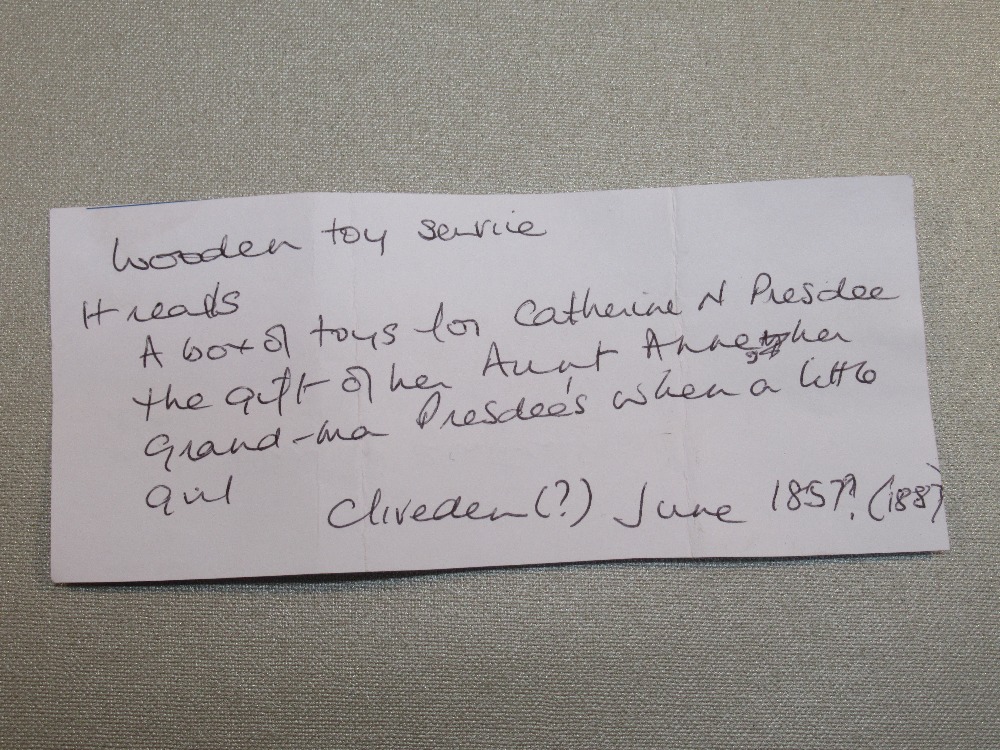 Wooden toy service
It reads
A box of toys for Catherine N Presdee
the gift of her Aunt Anne her
Grand-ma Presdee's when a little
girl
Cliveden (?) June 1857? (1887)